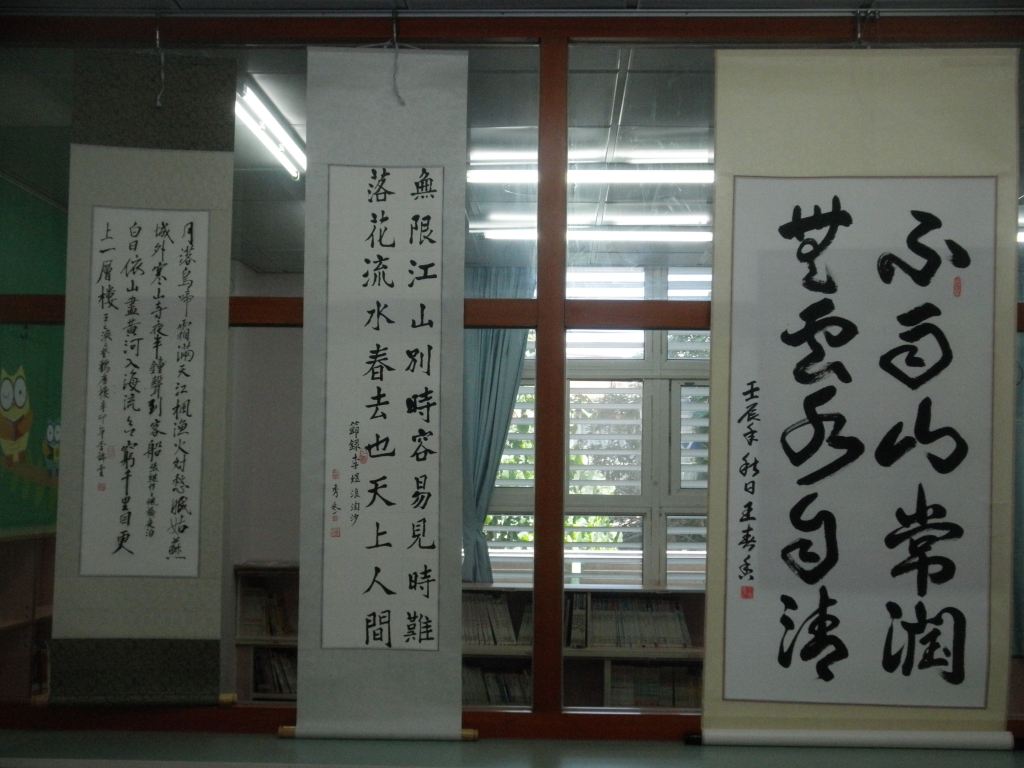 不雨山常潤
無雲水自清
壬辰年秋日王春香
無限江山別時容易見時難
落花流水春去也天上人間
節錄李煜浪淘沙
月落烏啼霜滿天江楓漁火對愁眠姑蘇
城外寒山寺夜半鐘聲到客船張繼楓橋夜泊
白日依山盡黃河入海流欲窮千里目更
上一層樓